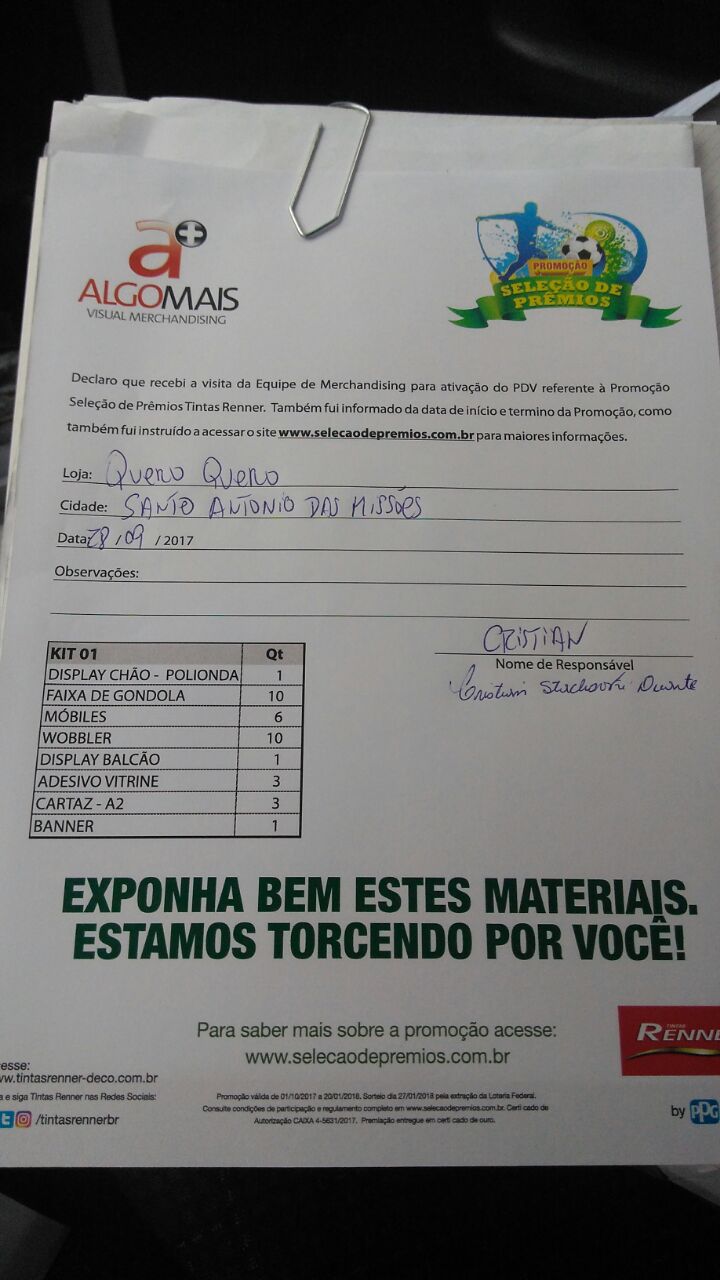 a+
ALGOMAIS
VISUAL MERCHANDISING
PROMOÇÃO
SELEÇÃO DE
PRÊMIOS
Declaro que recebi a visita da Equipe de Merchandising para ativação do PDV referente à Promoção
Seleção de Prêmios Tintas Renner. Também fui informado da data de início e termino da Promoção, como
também fui instruído a acessar o site www.selecaodepremios.com.br para maiores informações.
Loja: QUERO QUERO
Cidade: SANTO ANTONIO DAS MISSÕES
Data: 28/09 / 2017
Observações:
CRISTIAN
Nome de Responsável
KIT 01 Qt
DISPLAY CHÃO - POLIONDA 1
FAIXA DE GONDOLA 10
MÓBILES 6
WOBBLER 10
DISPLAY BALCÃO 1
ADESIVO VITRINE 3
CARTAZ - A2 3
BANNER 1
EXPONHA BEM ESTES MATERIAIS.
ESTAMOS TORCENDO POR VOCÊ!
Para saber mais sobre a promoção acesse:
www.selecaodepremios.com.br
TINTAS
RENNE
esse:
w.tintasrenner-deco.com.br
a e siga Tintas Renner nas Redes Sociais:
/tintasrennerbr
Promoção válida de 01/10/2017 a 20/01/2018. Sorteio dia 27/01/2018 pela extração da Loteria Federal.
Consulte condições de participação e regulamento completo em www.selecaodepremios.com.br. Certi cado de
Autorização CAIXA 4-5631/2017. Premiação entregue em certi cado de ouro.
by PPG